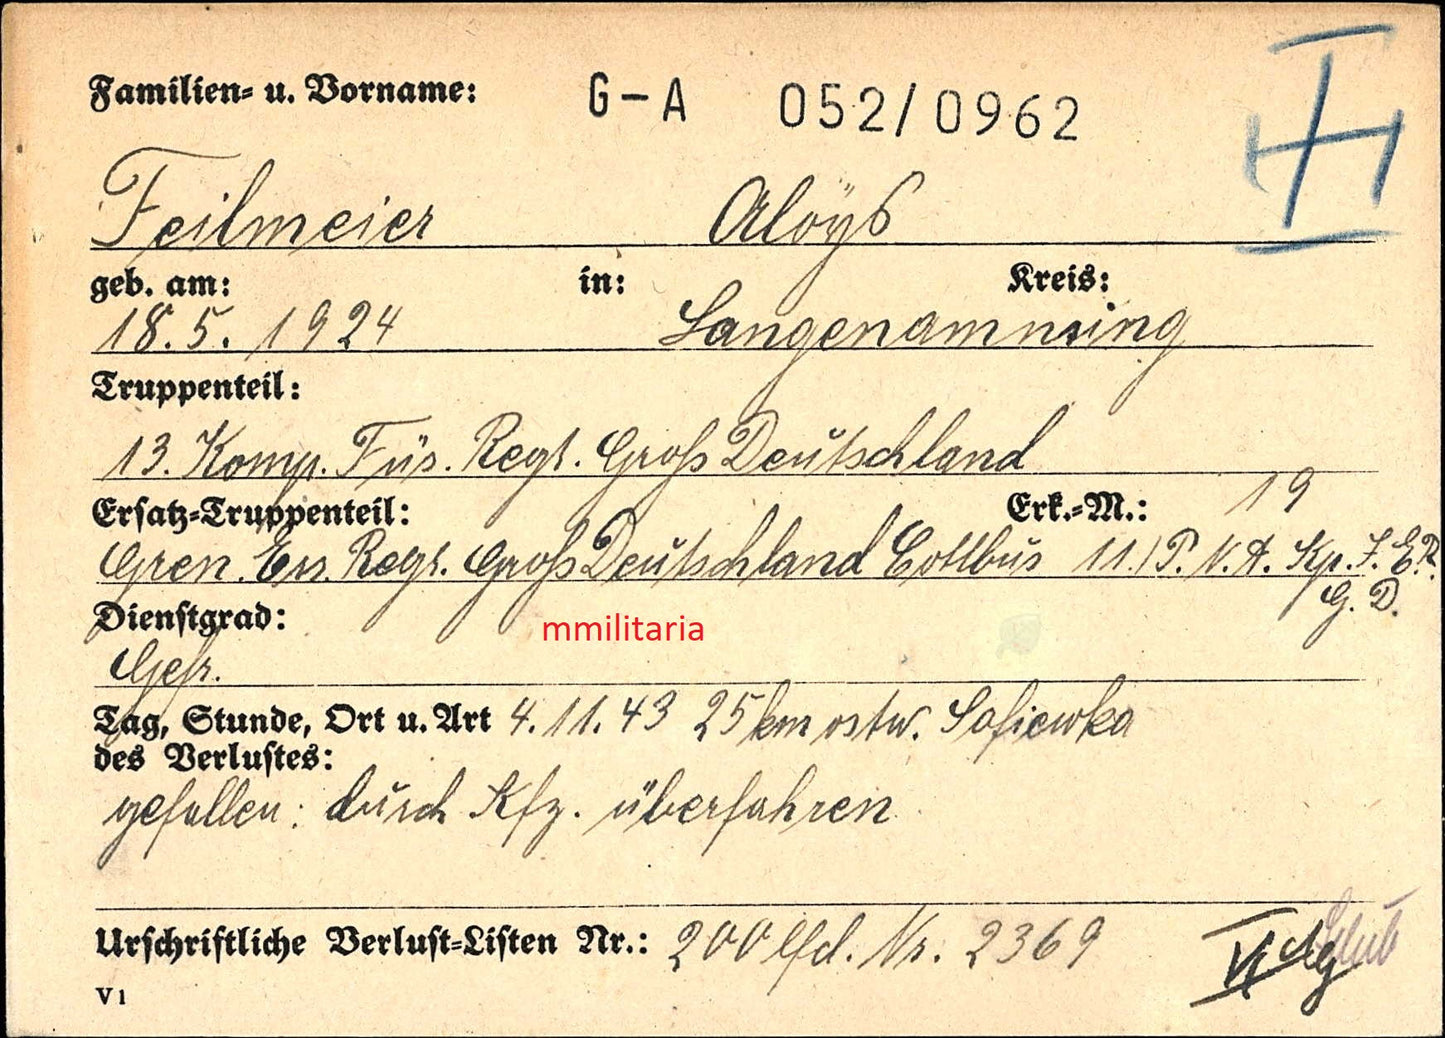 Familien- u. Vorname: G-A 052/0962
Feilmeier Aloÿs
geb. am: in: Kreis:
18.5.1924 Langenamming
Truppenteil:
13. Komp. Füs. Regt. Groß Deutschland
Ersatz-Truppenteil: Erk.-M.: 19
Gren. Ers. Regt. Groß Deutschland Cottbus 11./P. N. A. Kp. I. E. R.
G. D.
Dienstgrad:
mmilitaria
Gefr.
Tag, Stunde, Ort u. Art 4.11.43 25 km ostw. Sofiewka
des Verlustes:
gefallen: durch Kfz. überfahren
Urschriftliche Verlust-Listen Nr.: 200 lfd. Nr. 2369
V 1